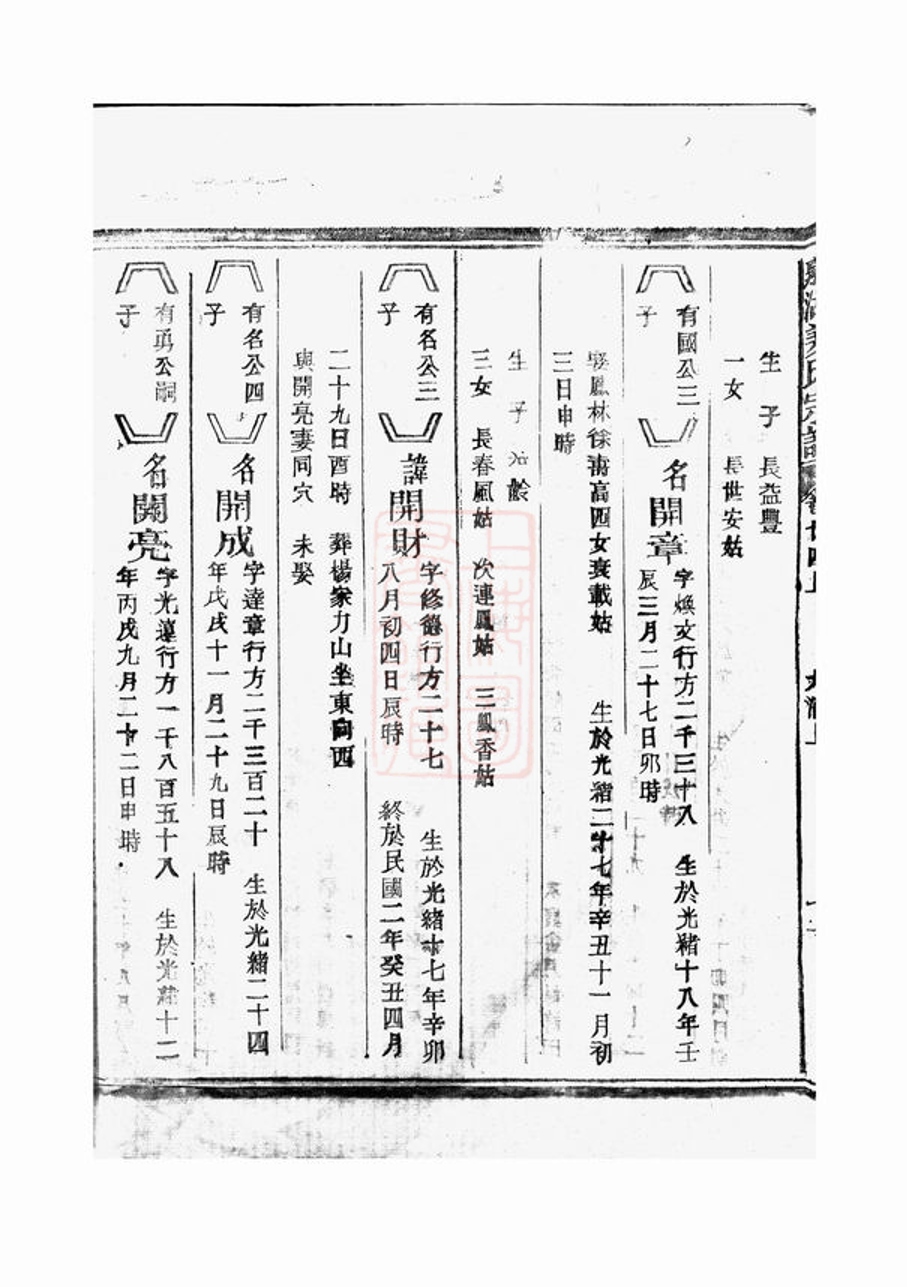 生子 長益豐
一女 長世安姑
有國公三
子
名開章
字煥文行方二千三十八 生於光緒十八年壬
辰三月二十七日卯時
娶鳳林徐 高四女 載姑 生於光緒二十七年辛丑十一月初
三日申時
生子 齡
三女 長春風姑 次連鳳姑 三鳳香姑
有名公三
子
諱開財
字修德行方二十七 生於光緒十七年辛卯
八月初四日辰時 終於民國二年癸丑四月
二十九日酉時 葬楊家力山坐東向西
與開亮妻同穴 未娶
有名公四
子
名開成
字達章行方二千三百二十 生於光緒二十四
年戊戌十一月二十九日辰時
有勇公嗣
子
名開亮
字光 行方一千八百五十八 生於光緒十二
年丙戌九月二十二日申時